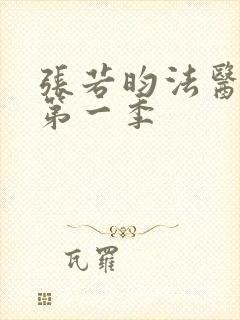 張若昀法醫
第一季
瓦羅